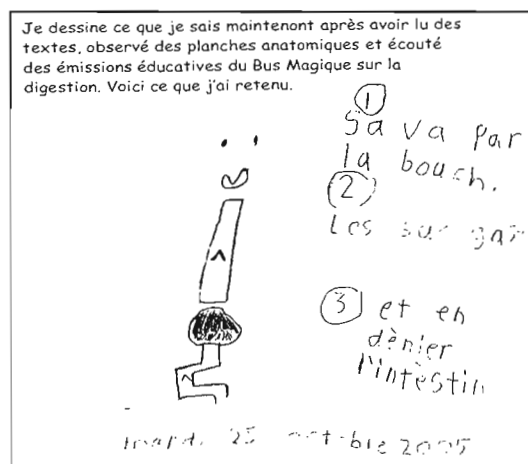 Je dessine ce que je sais maintenont après avoir lu des
textes, observé des planches anatomiques et écouté
des émissions éducatives du Bus Magique sur la
digestion. Voici ce que j'ai retenu.
1
Sa va par
la bouch.
2
Les
3 et en
dènier
l'intèstin
mardi 25 octobre 2005